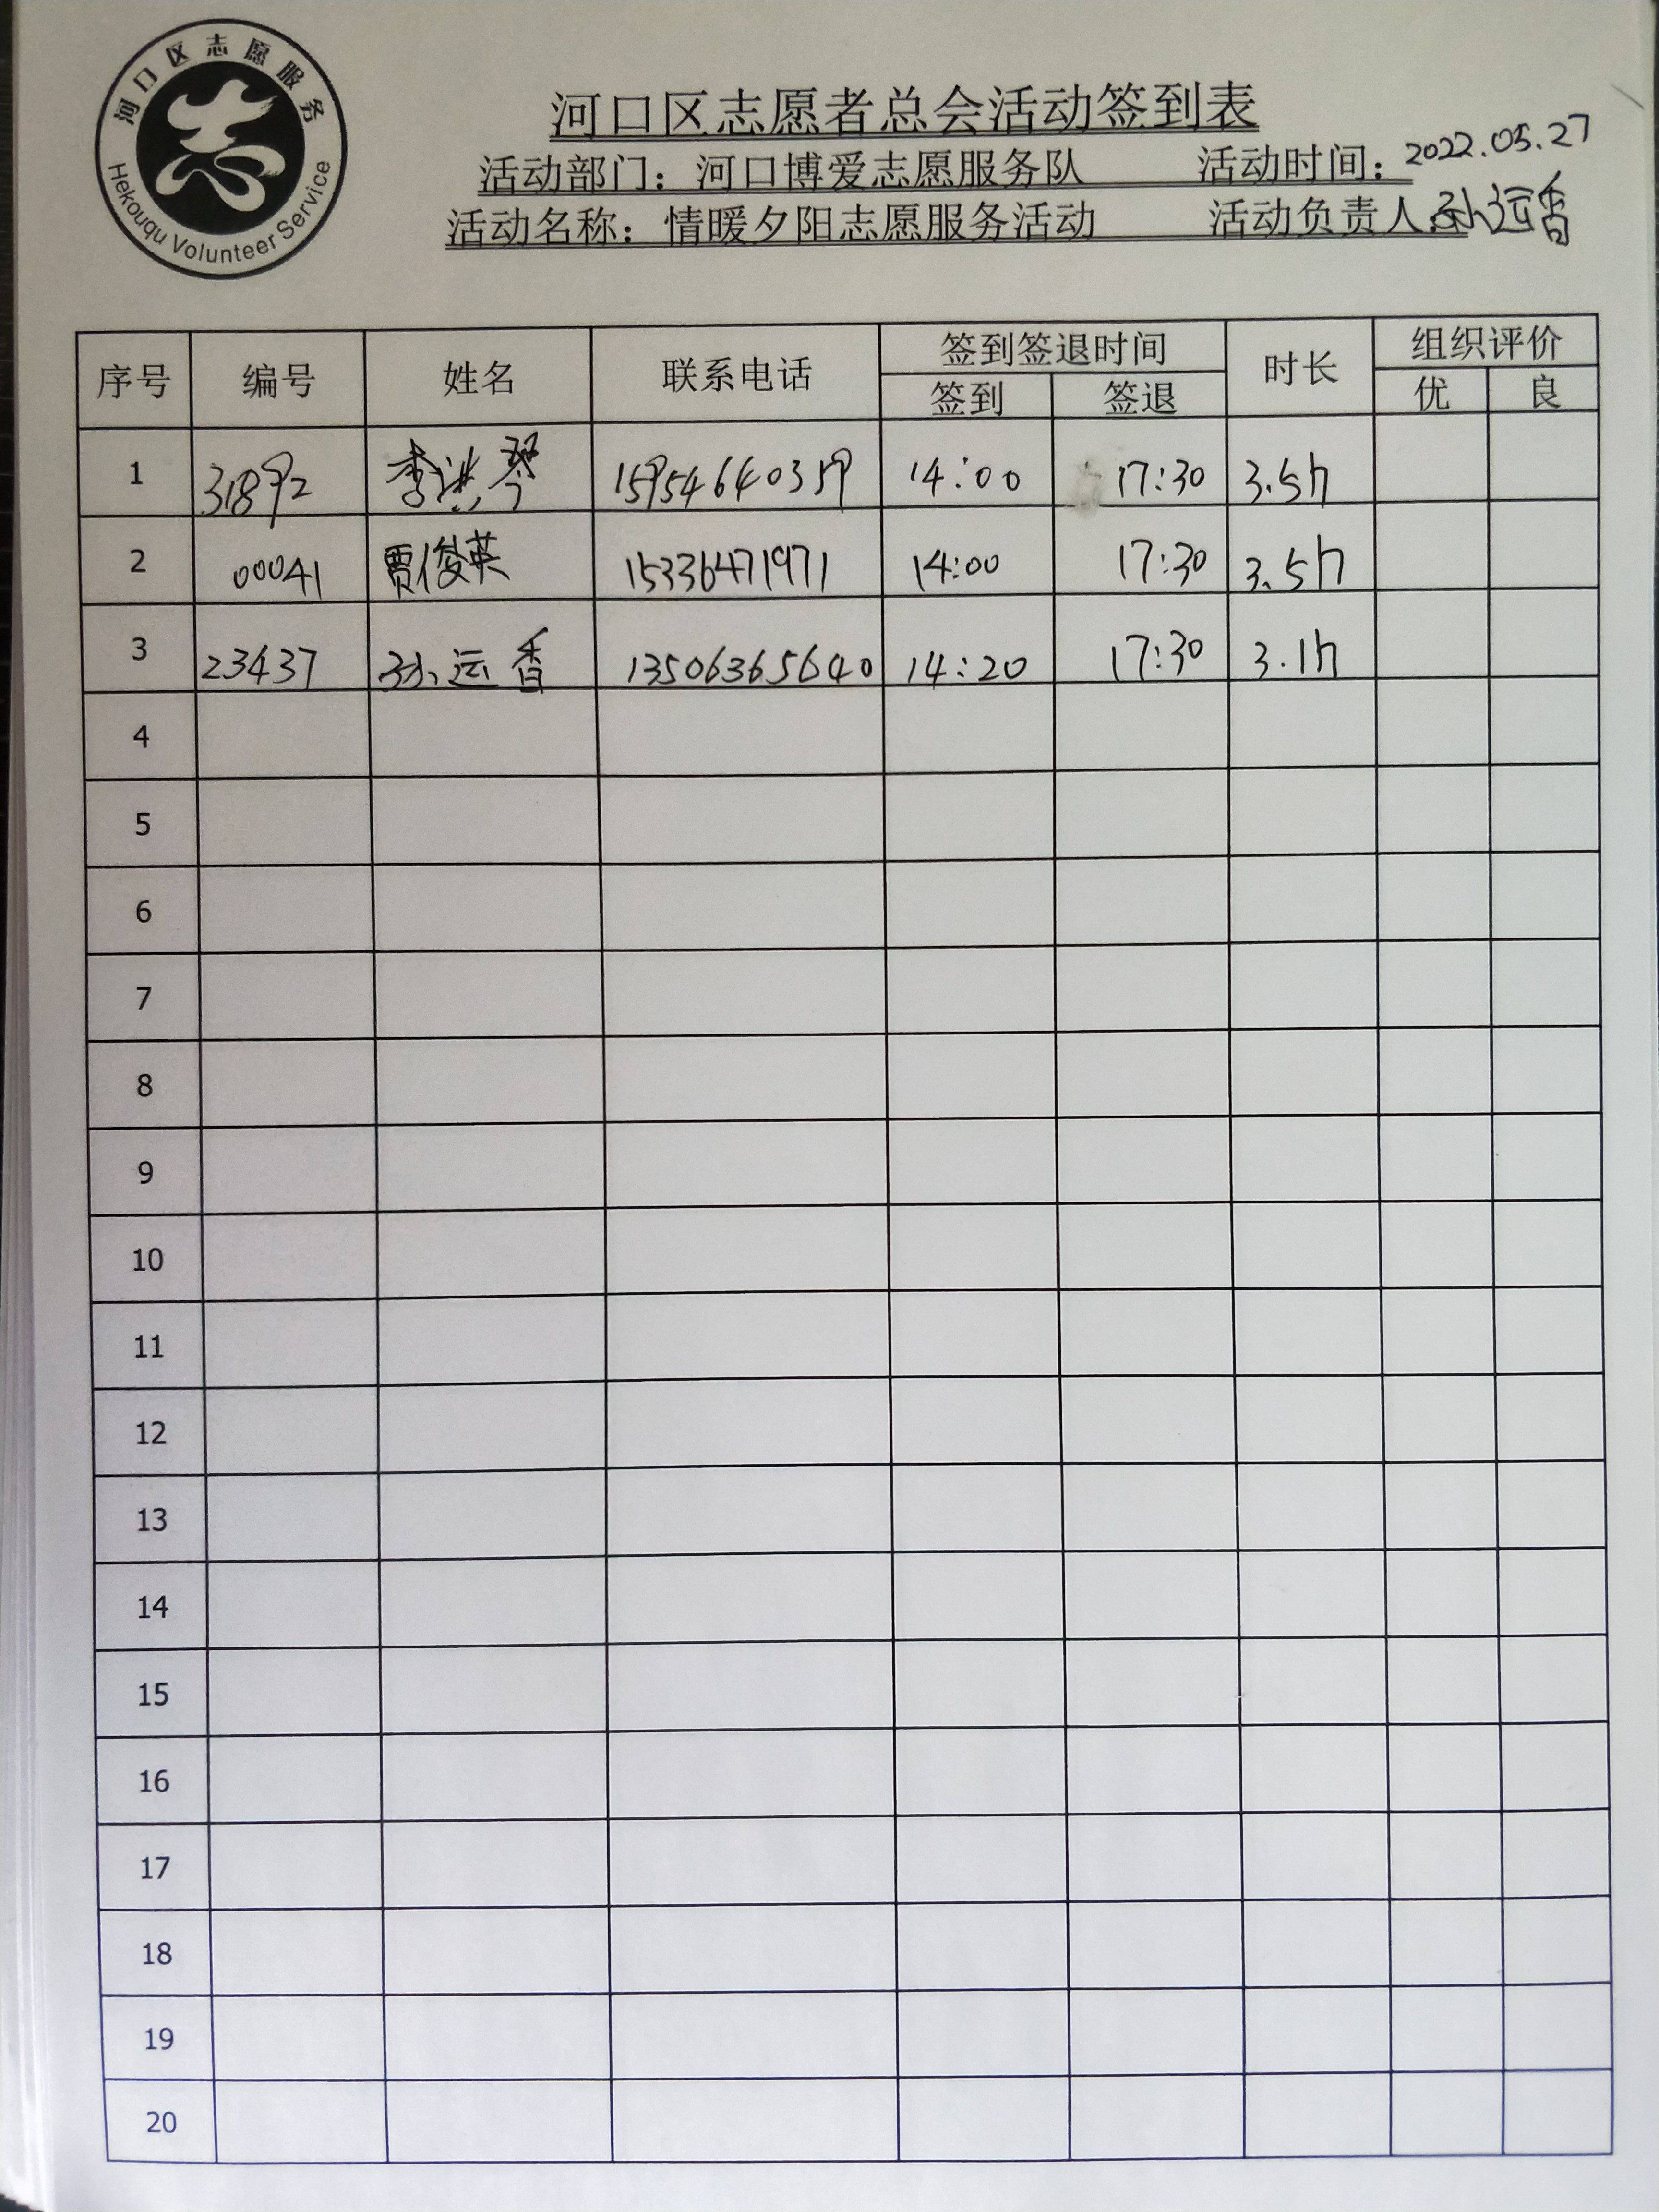 河口区志愿服务
Hekouqu Volunteer Service
河口区志愿者总会活动签到表
活动部门：河口博爱志愿服务队 活动时间：2022.05.27
活动名称：情暖夕阳志愿服务活动 活动负责人：孙远香
序号 编号 姓名 联系电话 签到签退时间 时长 组织评价
签到 签退 优 良
1 31892 李洪琴 15954640359 14:00 17:30 3.5h
2 00041 贾俊英 15336471971 14:00 17:30 3.5h
3 23437 孙远香 13506365640 14:20 17:30 3.1h
4
5
6
7
8
9
10
11
12
13
14
15
16
17
18
19
20